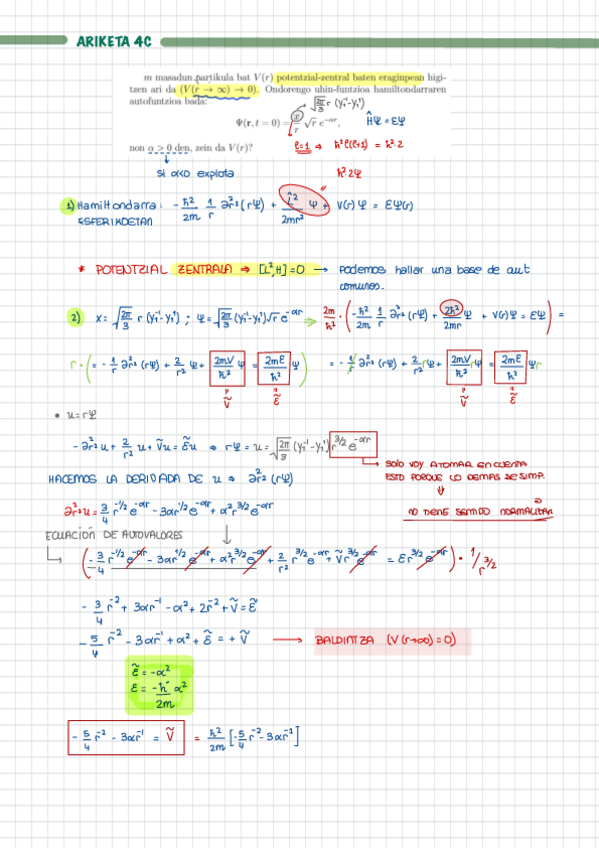 ARIKETA 4C
m masadun partikula bat V(r) potentzial-zentral baten eraginpean higi-
tzen ari da (V(r → ∞) → 0). Ondorengo uhin-funtzioa hamiltondarraren
autofuntzioa bada:
√(2π/3) r (Y₁⁻¹-Y₁¹)
Ψ(r, t = 0) = x/r √r e^(-αr), ĤΨ = EΨ
l=1 ⇒ ħ²l(l+1) = ħ²·2
non α > 0 den, zein da V(r)?
si α<0 explota
ħ²·2Ψ
1) Hamiltondarra: - ħ²/2m 1/r ∂²r²(rΨ) + L̂²/2mr² Ψ + V(r)Ψ = EΨ(r)
ESFERIKOETAN
* POTENTZIAL ZENTRALA ⇒ [L²,H]=0 → Podemos hallar una base de aut
comunes.
2) x = √(2π/3) r (Y₁⁻¹-Y₁¹) ; Ψ = √(2π/3) (Y₁⁻¹-Y₁¹) √r e^(-αr) ⇒ 2m/ħ² · (- ħ²/2m 1/r ∂²r²(rΨ) + 2ħ²/2mr Ψ + V(r)Ψ = EΨ) =
r · (= - 1/r ∂²r²(rΨ) + 2/r² Ψ + 2mV/ħ² Ψ = 2mE/ħ² Ψ) = - 1/r r ∂²r²(rΨ) + 2/r² rΨ + 2mV/ħ² rΨ = 2mE/ħ² Ψr
Ṽ Ẽ Ṽ Ẽ
• u = rΨ
- ∂²r² u + 2/r² u + Ṽu = Ẽu ⇒ rΨ = u = √(2π/3) (Y₁⁻¹-Y₁¹) r^(3/2) e^(-αr)
SOLO VOY A TOMAR EN CUENTA
ESTO PORQUE LO DEMAS SE SIMP.
HACEMOS LA DERIVADA DE u ⇒ ∂²r² (rΨ)
NO TIENE SENTIDO NORMALIZAR
∂²r² u = 3/4 r^(-1/2) e^(-αr) - 3αr^(1/2) e^(-αr) + α² r^(3/2) e^(-αr)
ECUACIÓN DE AUTOVALORES
(- 3/4 r^(-1/2) e^(-αr) - 3αr^(1/2) e^(-αr) + α² r^(3/2) e^(-αr) + 2/r² r^(3/2) e^(-αr) + Ṽ r^(3/2) e^(-αr) = E r^(3/2) e^(-αr)) · 1/r^(3/2)
- 3/4 r⁻² + 3αr⁻¹ - α² + 2r⁻² + Ṽ = Ẽ
- 5/4 r⁻² - 3αr⁻¹ + α² + Ẽ = + Ṽ → BALDINTZA (V(r→∞) = 0)
Ẽ = -α²
E = -ħ²/2m α²
- 5/4 r⁻² - 3αr⁻¹ = Ṽ = ħ²/2m [- 5/4 r⁻² - 3αr⁻¹]